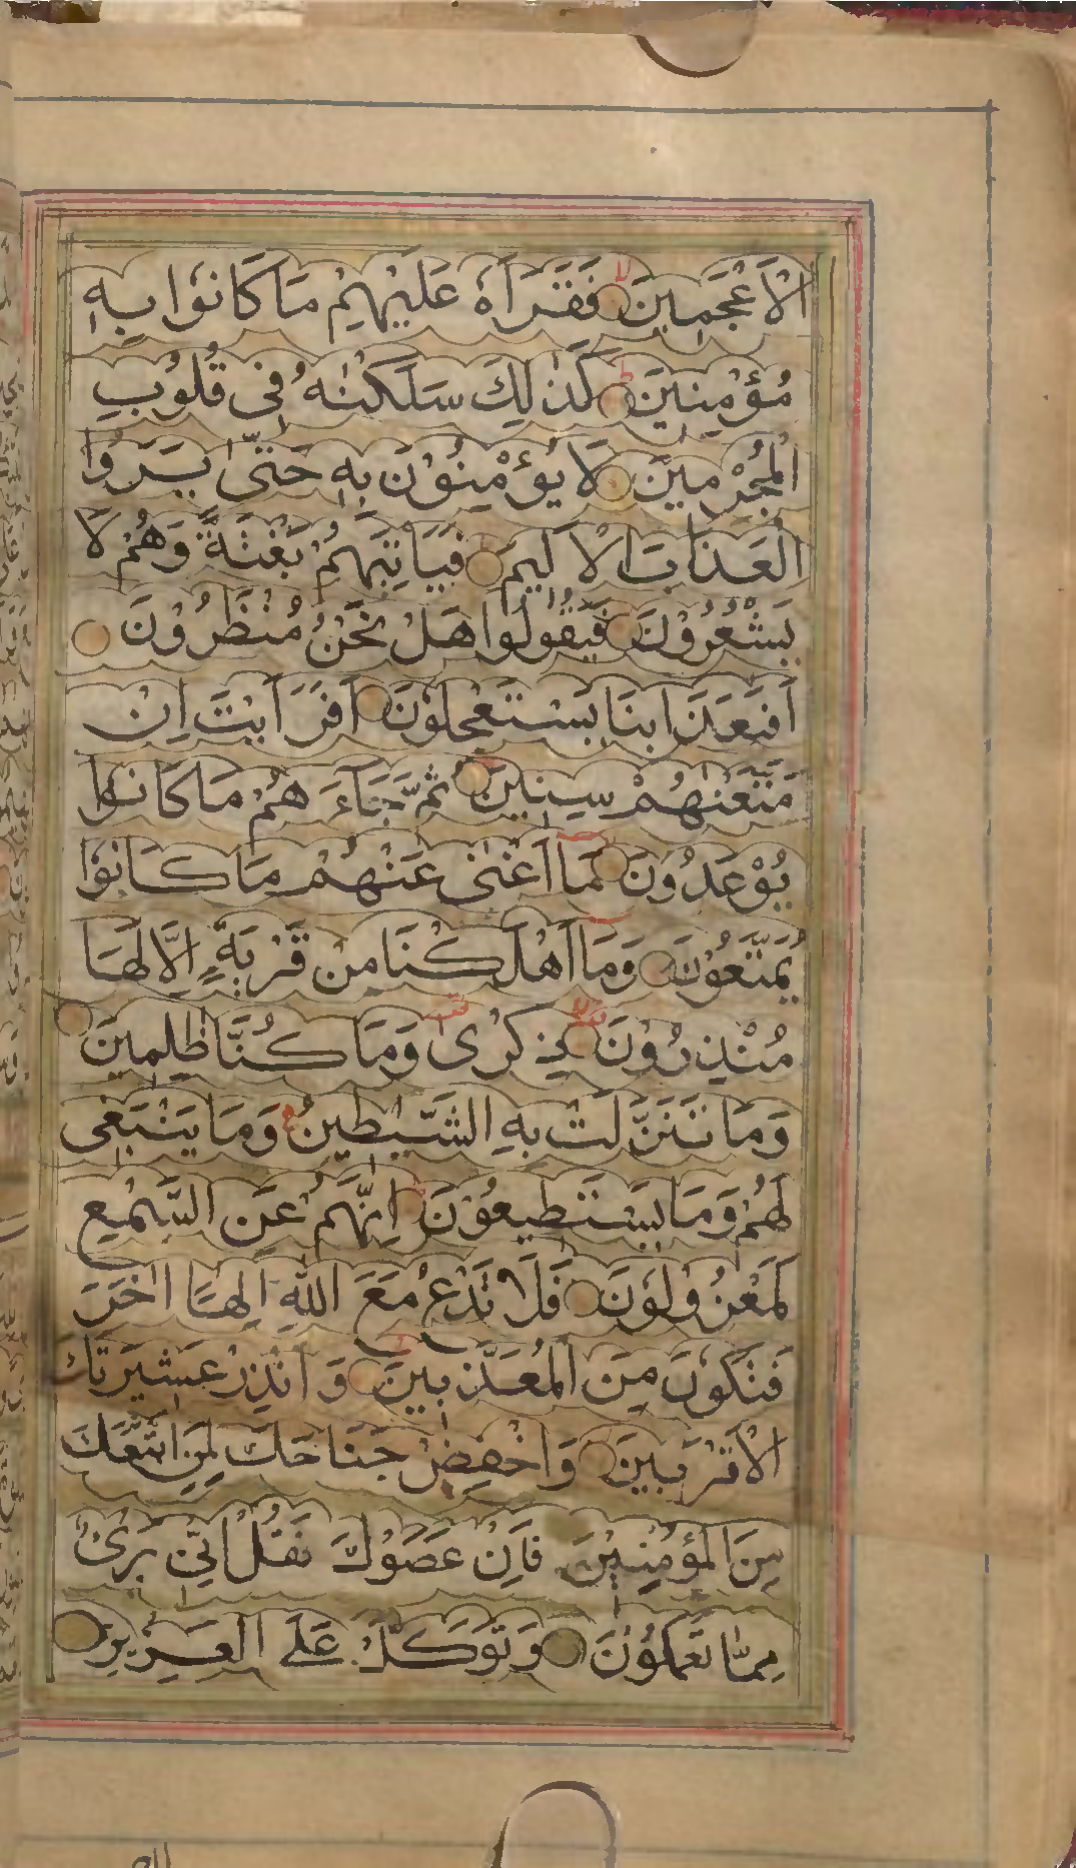 الْاَعْجَمِينَ فَقَرَاَهٗ عَلَيْهِمْ مَا كَانُوا بِهٖ
مُؤْمِنِينَ كَذٰلِكَ سَلَكْنٰهُ فِى قُلُوبِ
الْمُجْرِمِينَ لَا يُؤْمِنُوْنَ بِهٖ حَتّٰى يَرَوُا
الْعَذَابَ الْاَلِيمَ فَيَاْتِيَهُمْ بَغْتَةً وَهُمْ لَا
يَشْعُرُوْنَ فَيَقُولُوا هَلْ نَحْنُ مُنْظَرُوْنَ
اَفَبِعَذَابِنَا يَسْتَعْجِلُوْنَ اَفَرَاَيْتَ اِنْ
مَتَّعْنٰهُمْ سِنِينَ ثُمَّ جَاءَهُمْ مَا كَانُوا
يُوْعَدُوْنَ مَا اَغْنٰى عَنْهُمْ مَا كَانُوْا
يُمَتَّعُوْنَ وَمَا اَهْلَكْنَا مِنْ قَرْيَةٍ اِلَّا لَهَا
مُنْذِرُوْنَ ذِكْرٰى وَمَا كُنَّا ظٰلِمِينَ
وَمَا تَنَزَّلَتْ بِهِ الشَّيٰطِينُ وَمَا يَنْبَغِى
لَهُمْ وَمَا يَسْتَطِيعُوْنَ اِنَّهُمْ عَنِ السَّمْعِ
لَمَعْزُوْلُوْنَ فَلَا تَدْعُ مَعَ اللّٰهِ اِلٰهًا اٰخَرَ
فَتَكُوْنَ مِنَ الْمُعَذَّبِينَ وَاَنْذِرْ عَشِيْرَتَكَ
الْاَقْرَبِينَ وَاخْفِضْ جَنَاحَكَ لِمَنِ اتَّبَعَكَ
مِنَ الْمُؤْمِنِينَ فَاِنْ عَصَوْكَ فَقُلْ اِنِّى بَرِىءٌ
مِمَّا تَعْمَلُوْنَ وَتَوَكَّلْ عَلَى الْعَزِيزِ